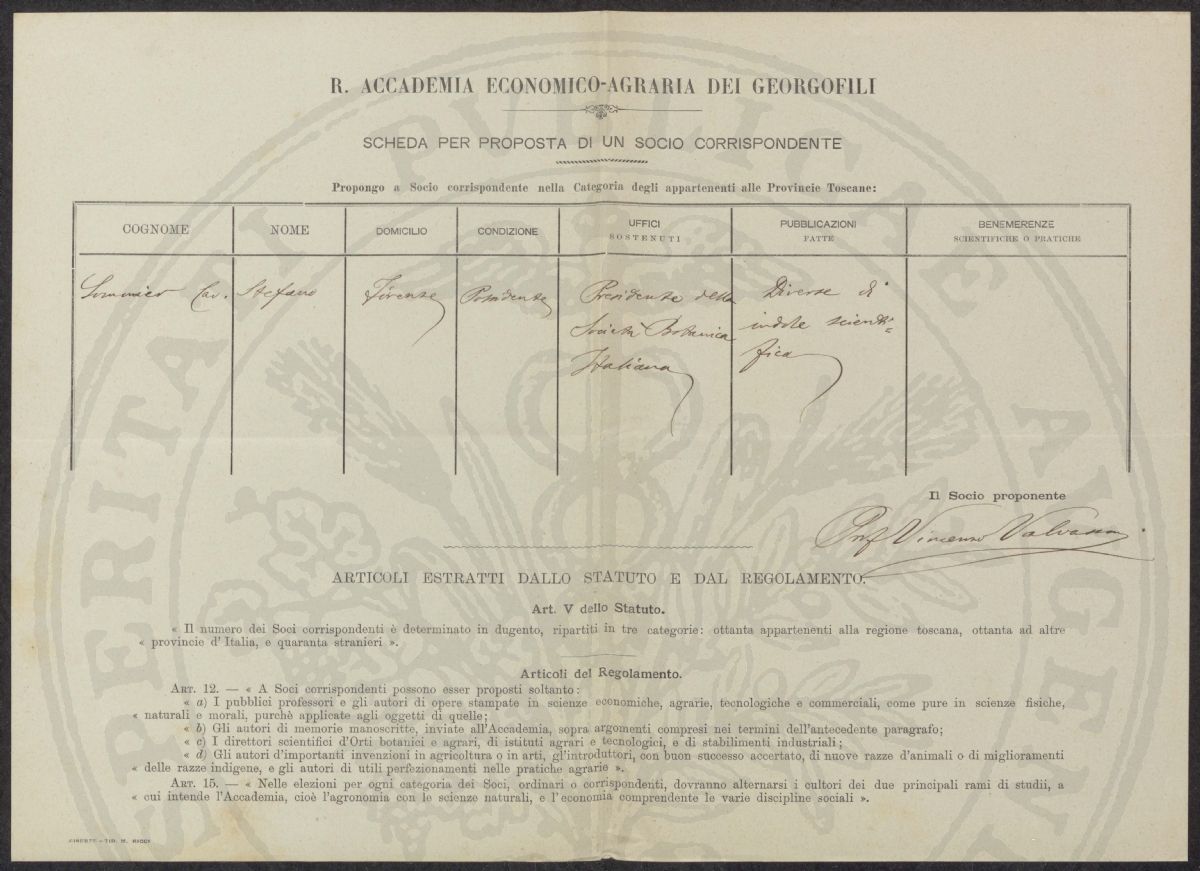 R. ACCADEMIA ECONOMICO-AGRARIA DEI GEORGOFILI
SCHEDA PER PROPOSTA DI UN SOCIO CORRISPONDENTE
Propongo a Socio corrispondente nella Categoria degli appartenenti alle Provincie Toscane:
COGNOME NOME DOMICILIO CONDIZIONE UFFICI SOSTENUTI PUBBLICAZIONI FATTE BENEMERENZE SCIENTIFICHE O PRATICHE
Sommier Cav. Stefano Firenze Possidente Presidente della Diverse di
Società Botanica indole scienti=
Italiana fica
Il Socio proponente
Prof Vincenzo Valvassori
ARTICOLI ESTRATTI DALLO STATUTO E DAL REGOLAMENTO.
Art. V dello Statuto.
« Il numero dei Soci corrispondenti è determinato in dugento, ripartiti in tre categorie: ottanta appartenenti alla regione toscana, ottanta ad altre
« provincie d'Italia, e quaranta stranieri ».
Articoli del Regolamento.
ART. 12. — « A Soci corrispondenti possono esser proposti soltanto:
« a) I pubblici professori e gli autori di opere stampate in scienze economiche, agrarie, tecnologiche e commerciali, come pure in scienze fisiche,
« naturali e morali, purchè applicate agli oggetti di quelle;
« b) Gli autori di memorie manoscritte, inviate all'Accademia, sopra argomenti compresi nei termini dell'antecedente paragrafo;
« c) I direttori scientifici d'Orti botanici e agrari, di istituti agrari e tecnologici, e di stabilimenti industriali;
« d) Gli autori d'importanti invenzioni in agricoltura o in arti, gl'introduttori, con buon successo accertato, di nuove razze d'animali o di miglioramenti
« delle razze indigene, e gli autori di utili perfezionamenti nelle pratiche agrarie ».
ART. 15. — « Nelle elezioni per ogni categoria dei Soci, ordinari o corrispondenti, dovranno alternarsi i cultori dei due principali rami di studii, a
« cui intende l'Accademia, cioè l'agronomia con le scienze naturali, e l'economia comprendente le varie discipline sociali ».
FIRENZE - TIP. M. RICCI